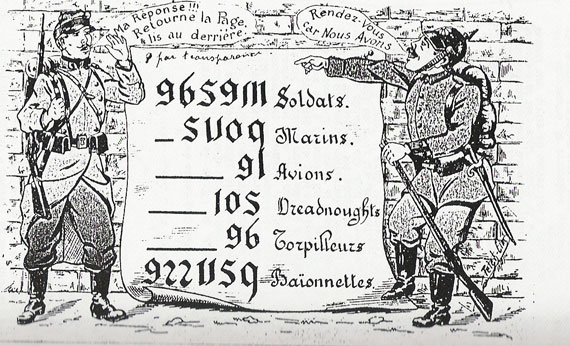 Ma Réponse!!!
Retourne la Page.
& lis au derrière.
& par transparence
Rendez-vous
car Nous Avons
9659111 Soldats.
_ 51109 Marins.
____ 91 Avions.
___ 105 Dreadnoughts
____ 96 Torpilleurs
9221159 Baïonnettes